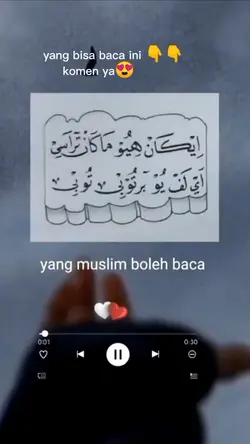 yang bisa baca ini 👇👇
komen ya😍
إيكان هيو ماكان تراسي
اي لف يو برتوبي توبي
yang muslim boleh baca
0:01
0:30